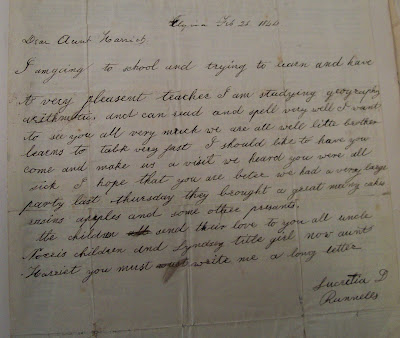 Elyria Feb 28 1840
Dear Aunt Harriet,
I am going to school and trying to learn and have
a very pleasent teacher I am studying geography
arithmetic, and can read and spell very well I want
to see you all very much we are all well little brother
learns to talk very fast I should like to have you
come and make us a visit we heard you were all
sick I hope that you are beter we had a very large
party last thursday they brought a great many cakes
rasins apples and some other presents.
the children send thur love to you all uncle
children and Lyndon little girl now aunt
Harriet you must write me a long letter
Lucretia D
Runnells